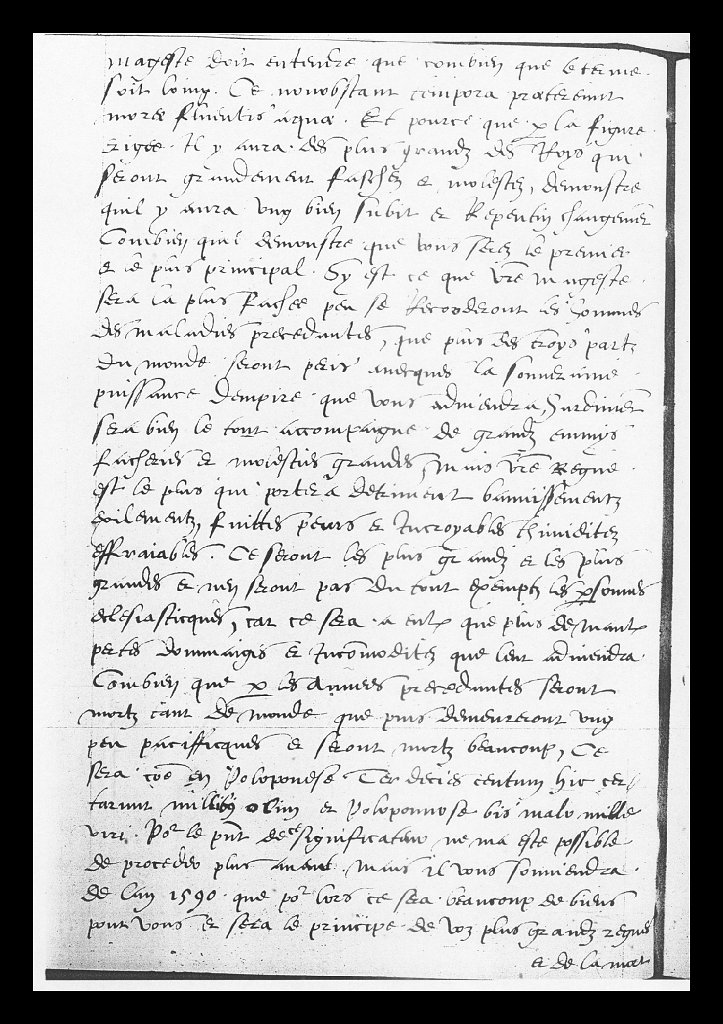 mageste doit entendre que combien que le terme
soit loing. Ce nonobstant tempora praetereunt
more fluentis aquae. Et pource que p la figure
erigee. Il y aura des plus grandz des Roys qui
seront grandement faschez et molestez, demonstre
quil y aura ung bien subit et Repentin changement
Combien quil demonstre que vous serez le premier
et le plus principal. Sy est ce que vre mageste
sera la plus fachee peu se Recorderont les hommes
des maladies precedantes, que plus des troys partz
du monde seront peris avecques la souveraine
puissance dempire que vous adviendra,
sera bien le tout accompaigne de grandz ennuys
facheries et molesties grandes, mais vre Regne
est le plus qui portera detriment bannissementz
exilementz, fuittes peurs et Increyables thimiditez
effraiables. Ce seront les plus grandz et les plus
grandes et nen seront pas du tout exemptz les psonnes
eclesiasticques, car ce sera a eulx que plus de maulx
pertes dommaiges et Incommoditez que leur adviendra
Combien que p les annees precedantes seront
mortz tant de monde que puis demeureront ung
peu pacifficques et seront mortz beaucoup, Ce
sera coe en Poloponese Ter decies centum hic cer/
tarunt millibus olim et Poloponnese bis malo mille
viri. Por le pnt de significateur ne ma este possible
de proceder plus avant mais il vous souviendra
de lan 1590 que por lors ce sera beaucoup de biens
pour vous et sera le principe de voz plus grandz regnes
et de la mort